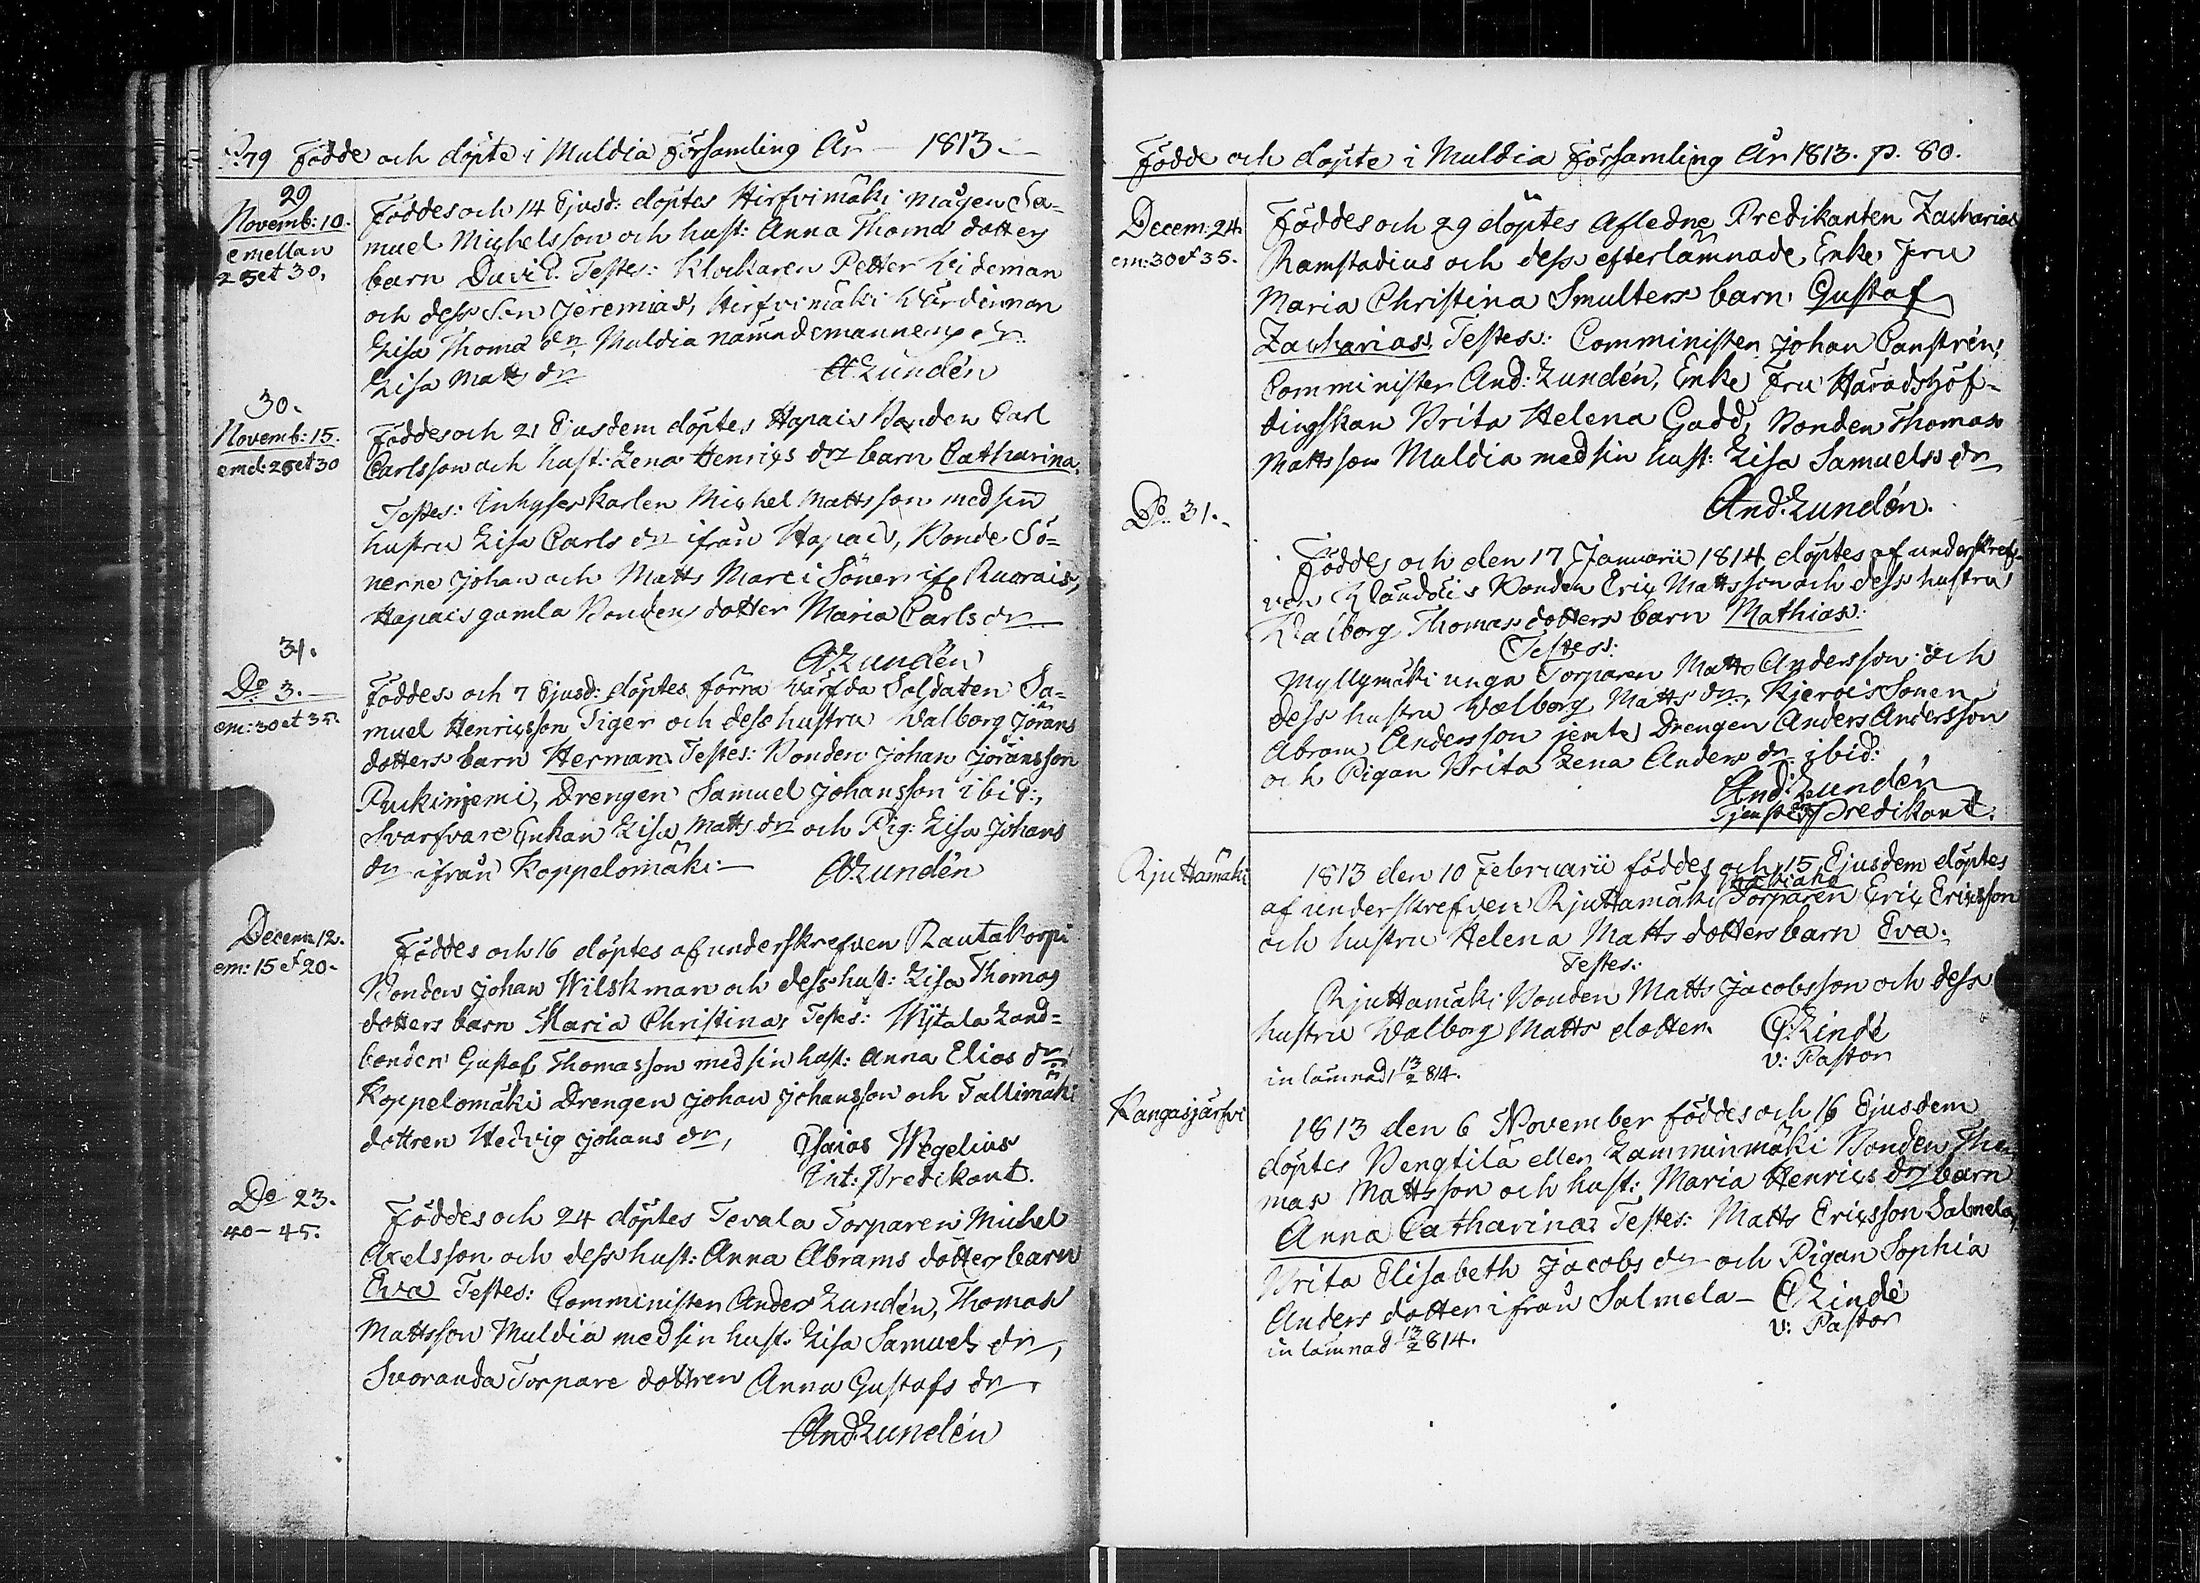 P. 79 Födde och döpte i Muldia Församling År 1813.
29
Novemb: 10.
emellan
25 et 30.
Föddes och 14 Ejusd: döptes Hirfvimäki mågen Sa=
muel Michelsson och hust: Anna Thomæ dotters
barn David. Testes: Klockaren Petter Videman
och dess Son Jeremias, Hirfvimäki Värdinnan
Lisa Thomæ dr, Muldia nämndemannens dr
Lisa Matts dr
A Lundén
30.
Novemb: 15.
emel: 25 et 30
Föddes och 21 Ejusdem döptes Hapais Bonden Carl
Carlsson och hust: Lena Henrics drs barn Catharina,
Testes: Inhyses karlen Michel Mattsson med sin
hustru Lisa Carls dr ifrån Hapais, Bonde Sö=
nerne Johan och Matts Marci Söner if. Ruorais,
Hapais gamla Bondens dotter Maria Carls dr
A Lundén
31.
Do 3.
em: 30 et 35.
Föddes och 7 Ejusd: döptes förra Värfda Soldaten Sa=
muel Henricsson Tiger och dess hustru Valborg Jörans
dotters barn Herman Testes: Bonden Johan Jöransson
Puckinjemi, Drengen Samuel Johansson ibid:,
Svarfvare Enkan Lisa Matts dr och Pig: Lisa Johans
dr ifrån Koppelomäki.
A Lundén
Decem 12.
em: 15 et 20.
Föddes och 16 döptes af underskrefven Rautakorpi
Bonden Johan Wilskman och dess hust: Lisa Thomas
dotters barn Maria Christina, Testes: Wijtala Land=
bonden Gustaf Thomasson med sin hust: Anna Elias dr
Koppelomäki Drengen Johan Johansson och Tallimäki
dottren Hedvig Johans dr,
Esaias Wegelius
Int: Predikant.
Do 23.
40 - 45.
Föddes och 24 döptes Tevala Torparen Michel
Axelsson och dess hust: Anna Abrams dotters barn
Eva Testes: Comministern Anders Lundén, Thomas
Mattsson Muldia med sin hust. Lisa Samuels dr,
Svoranda Torpare dottren Anna Gustafs dr.
And. Lundén
Födde och döpte i Muldia Församling År 1813. p. 80.
Decem: 24.
em: 30 et 35.
Föddes och 29 döptes Afledne Predikanten Zacharias
Ramstadius och dess efterlämnade Enke Fru
Maria Christina Smulters barn Gustaf
Zacharias Testes: Comministern Johan Canstrén,
Comminister And: Lundén, Enke Fru Häradshöf=
dingskan Brita Helena Gadd, Bonden Thomas
Mattsson Muldia med sin hust: Lisa Samuels dr
And. Lundén.
Do 31.
Föddes och den 17 Januarii 1814 döptes af underskref=
ven Klauddis Bonden Eric Mattsson och dess hustru
Walborg Thomas dotters barn Mathias:
Testes:
Myllymäki unga Torparen Matts Andersson och
dess hustru Valborg Matts dr, Kjerois Sonen
Abram Andersson jemte Drengen Anders Andersson
och Pigan Brita Lena Anders dr ibid:
And: Lundén
Predikant.
Rjuttamäki
1813 den 10 Februarii föddes och 15 Ejusdem döptes
af underskrefven Rjuttamäki Torparen Eric Ericsson
och hustru Helena Matts dotters barn Eva.
Testes:
Rjuttamäki Bonden Matts Jacobsson och dess
hustru Walborg Matts dotter.
G Lindé
v: Pastor
inlämnad 13/2 814.
Kangasjärfvi
1813 den 6 November föddes och 16 Ejusdem
döptes Bengtilä eller Lamminmäki Bonden Tho
mas Mattsson och hust: Maria Henrics drs barn
Anna Catharina, Testes: Matts Ericsson Salmela,
Brita Elisabeth Jacobs dr och Pigan Sophia
Anders dotter ifrån Salmela
G Lindé
v: Pastor
inlämnad 13/2 814.